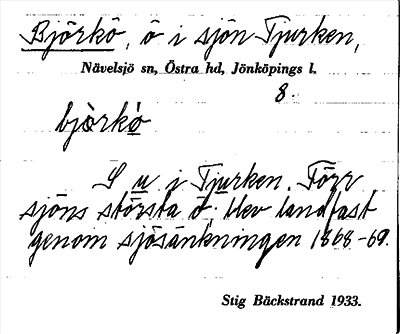 Björkö, ö i sjön Tjurken,
Nävelsjö sn, Östra hd, Jönköpings l.
8.
bjò̀rkò̀
S u i Tjurken. Förr
sjöns största ö; blev landfast
genom sjösänkningen 1868-69.
Stig Bäckstrand 1933.